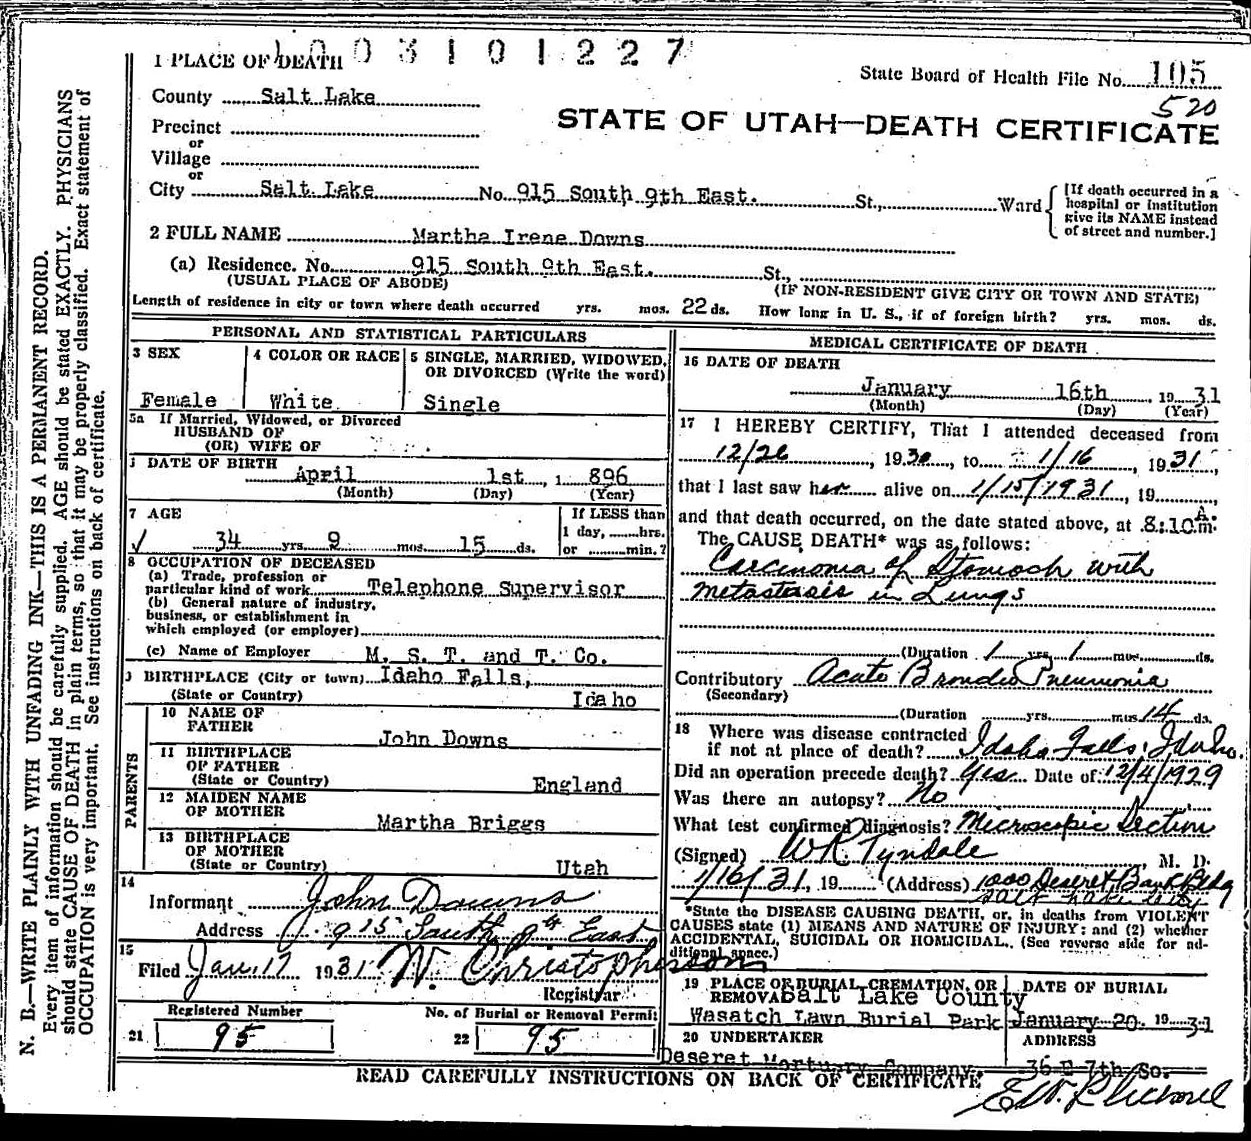 1003101227
1 PLACE OF DEATH
State Board of Health File No. 105
520
County Salt Lake
STATE OF UTAH—DEATH CERTIFICATE
Precinct
or
Village
or
City Salt Lake No. 915 South 9th East. St., Ward
[If death occurred in a
hospital or institution
give its NAME instead
of street and number.]
2 FULL NAME Martha Irene Downs
(a) Residence. No. 915 South 9th East. St.,
(USUAL PLACE OF ABODE) (IF NON-RESIDENT GIVE CITY OR TOWN AND STATE)
Length of residence in city or town where death occurred yrs. mos. 22 ds. How long in U. S., if of foreign birth? yrs. mos. ds.
PERSONAL AND STATISTICAL PARTICULARS
3 SEX
Female
4 COLOR OR RACE
White
5 SINGLE, MARRIED, WIDOWED,
OR DIVORCED (Write the word)
Single
5a If Married, Widowed, or Divorced
HUSBAND OF
(OR) WIFE OF
DATE OF BIRTH
April 1st, 1 896
(Month) (Day) (Year)
7 AGE
34 yrs. 9 mos. 15 ds.
If LESS than
1 day, hrs.
or min.?
8 OCCUPATION OF DECEASED
(a) Trade, profession or
particular kind of work Telephone Supervisor
(b) General nature of industry,
business, or establishment in
which employed (or employer)
(c) Name of Employer M. S. T. and T. Co.
9 BIRTHPLACE (City or town) Idaho Falls,
(State or Country) Idaho
PARENTS
10 NAME OF
FATHER John Downs
11 BIRTHPLACE
OF FATHER
(State or Country) England
12 MAIDEN NAME
OF MOTHER Martha Briggs
13 BIRTHPLACE
OF MOTHER
(State or Country) Utah
14
Informant John Downs
Address 915 South 9th East
15
Filed Jan. 17 1931 W. Christopherson
Registrar
Registered Number
21 95
No. of Burial or Removal Permit
22 95
MEDICAL CERTIFICATE OF DEATH
16 DATE OF DEATH
January 16th, 19 31
(Month) (Day) (Year)
17 I HEREBY CERTIFY, That I attended deceased from
12/26, 1930, to 1/16, 1931,
that I last saw her alive on 1/15/1931, 19
and that death occurred, on the date stated above, at 8:10 A. m.
The CAUSE DEATH* was as follows:
Carcinoma of Stomach with
metastasis in Lungs
(Duration 1 yrs. 1 mos. ds.
Contributory Acute Broncho Pneumonia
(Secondary)
(Duration yrs. mos. 14 ds.
18 Where was disease contracted
if not at place of death? Idaho Falls, Idaho.
Did an operation precede death? Yes Date of 12/4/1929
Was there an autopsy? No
What test confirmed diagnosis? Microscopic Section
(Signed) W R Tyndale, M. D.
1/16/31, 19 (Address) 1000 Deseret Bank Bldg
Salt Lake City
*State the DISEASE CAUSING DEATH, or, in deaths from VIOLENT
CAUSES state (1) MEANS AND NATURE OF INJURY: and (2) whether
ACCIDENTAL, SUICIDAL OR HOMICIDAL. (See reverse side for ad-
ditional space.)
19 PLACE OF BURIAL, CREMATION, OR
REMOVAL Salt Lake County
Wasatch Lawn Burial Park
DATE OF BURIAL
January 20, 19 31
20 UNDERTAKER
Deseret Mortuary Company.
ADDRESS
36 E 7th So.
READ CAREFULLY INSTRUCTIONS ON BACK OF CERTIFICATE
N. B.—WRITE PLAINLY WITH UNFADING INK—THIS IS A PERMANENT RECORD.
Every item of information should be carefully supplied. AGE should be stated EXACTLY. PHYSICIANS
should state CAUSE OF DEATH in plain terms, so that it may be properly classified. Exact statement of
OCCUPATION is very important. See instructions on back of certificate.